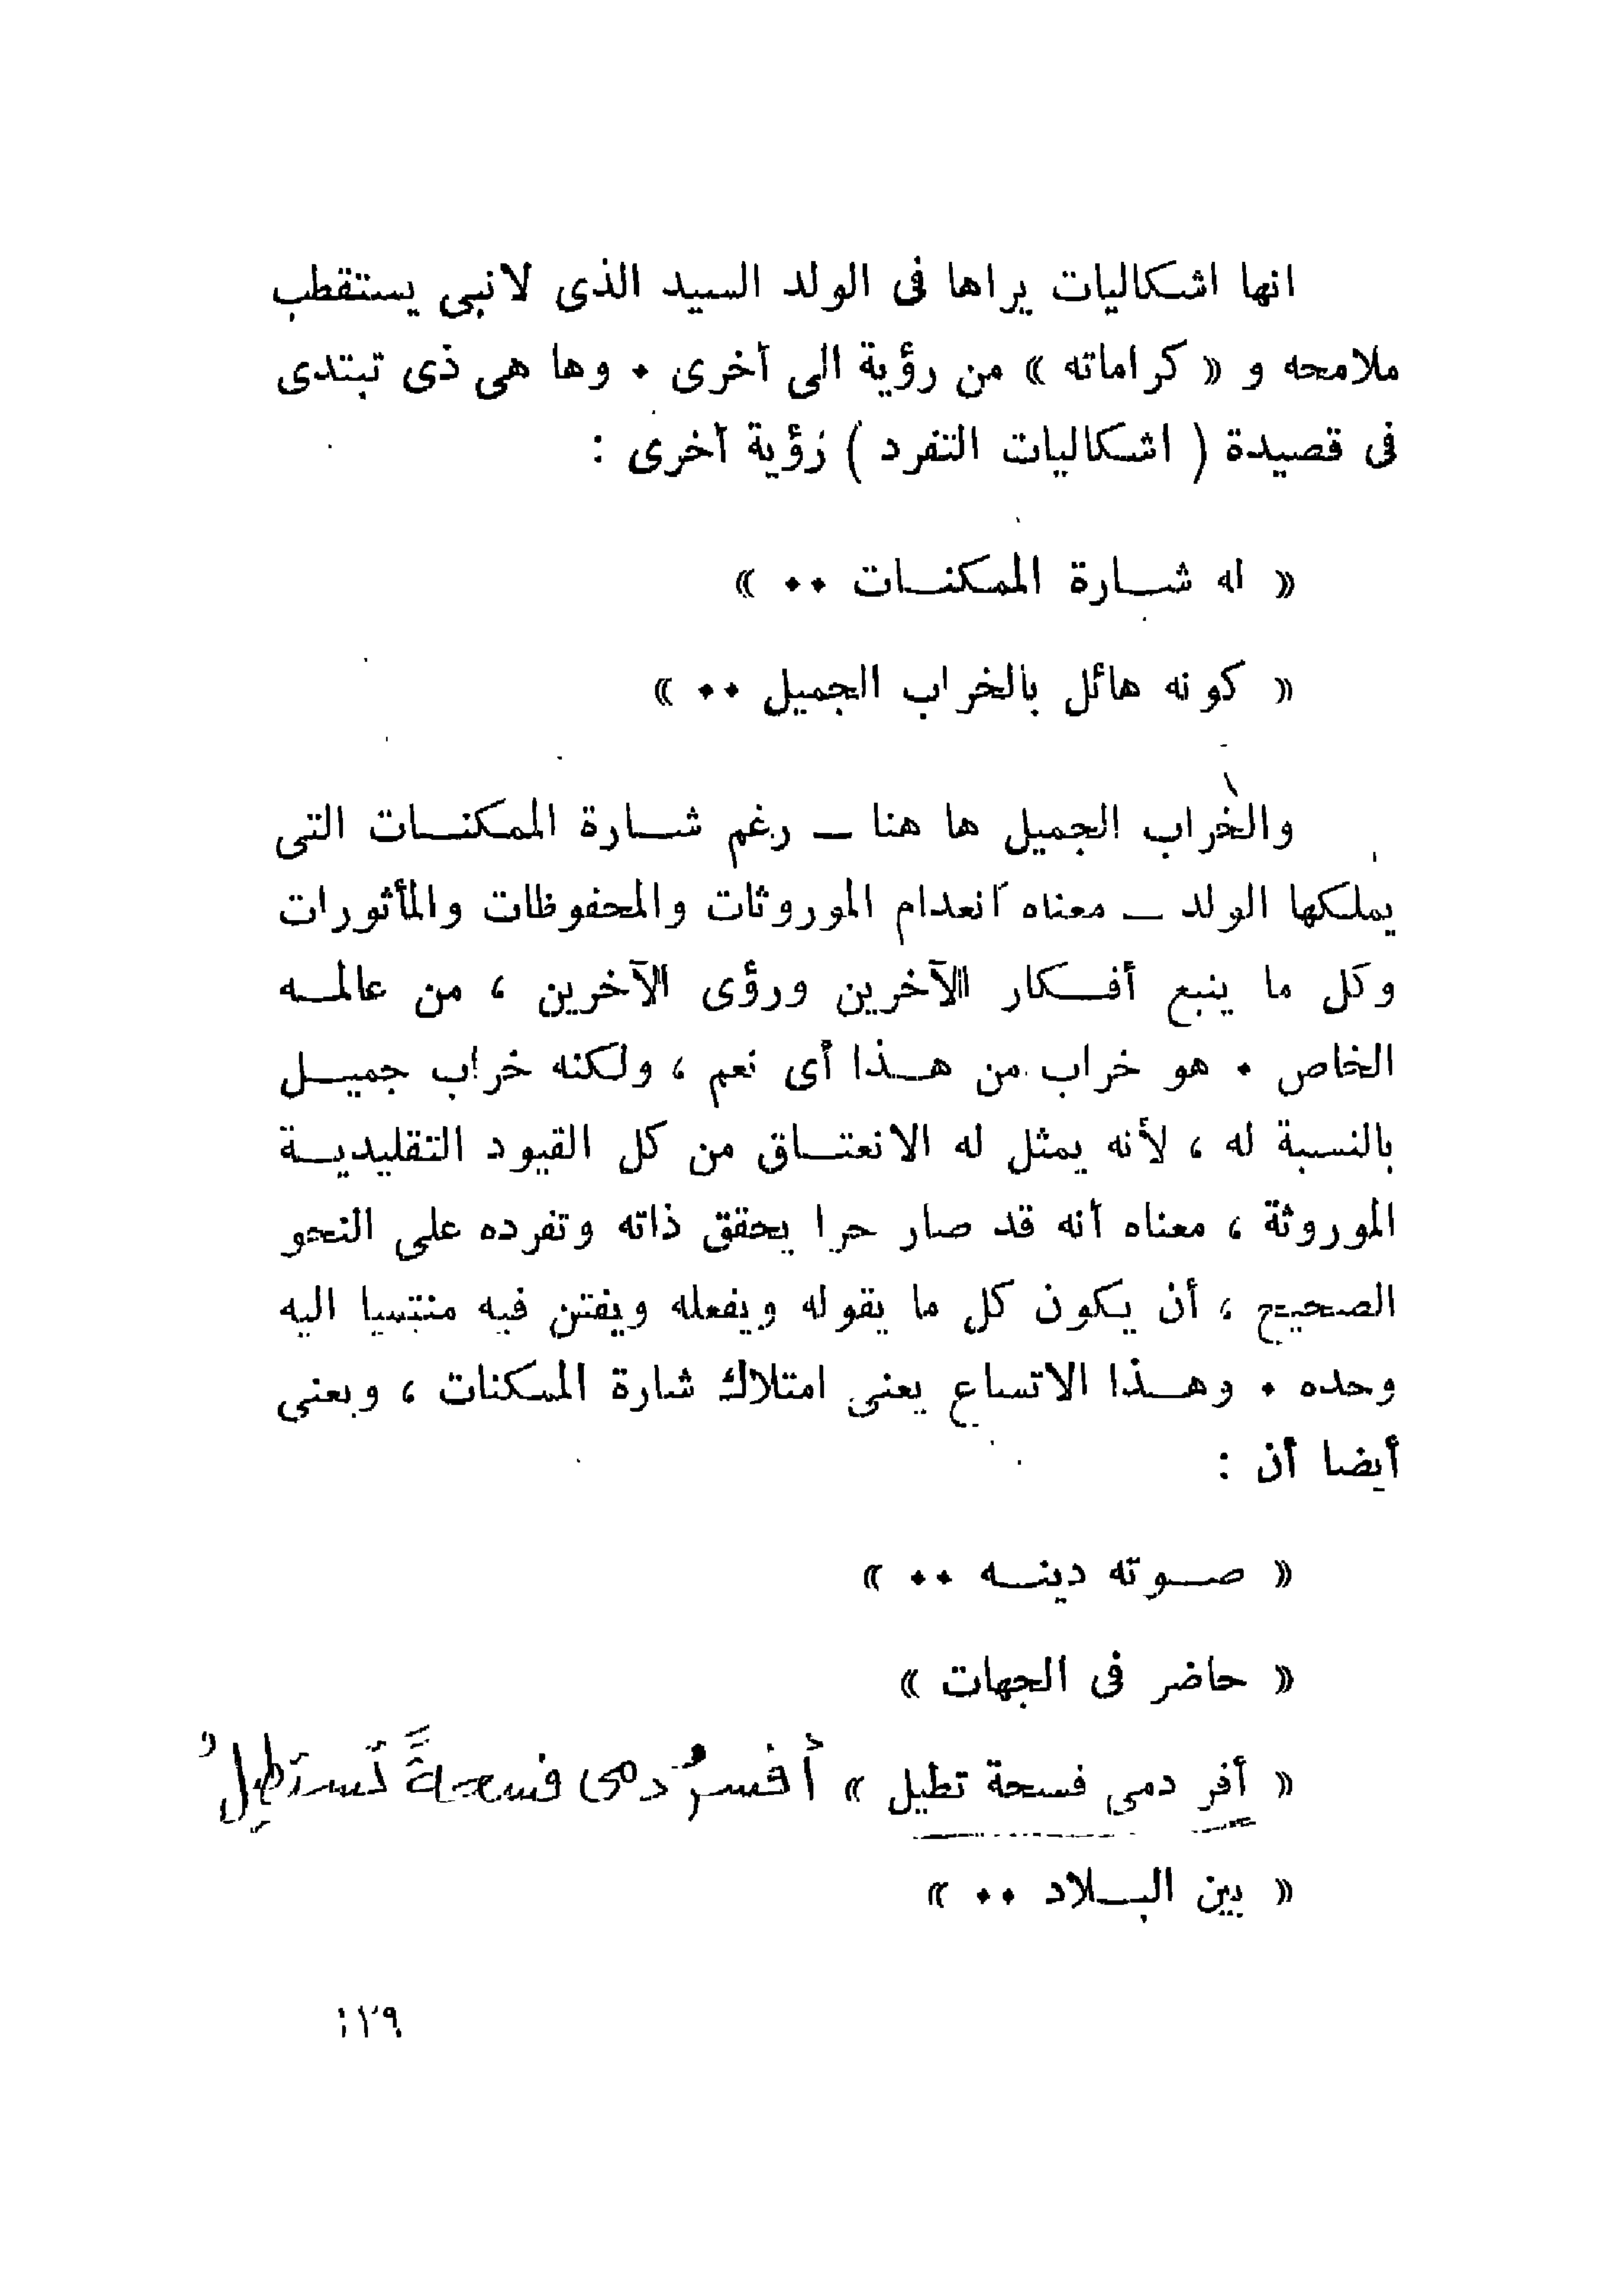 انها اشكاليات يراها فى الولد السيد الذى لانبى يستقطب
ملامحه و « كراماته » من رؤية الى أخرى ٠ وها هى ذى تبتدى
فى قصيدة ( اشكاليات التفرد ) رؤية أخرى :
« له شــارة الممكنــات ٠٠ »
« كونه هائل بالخراب الجميل ٠٠ »
والخراب الجميل ها هنا ــ رغم شــارة الممكنــات التى
يملكها الولد ــ معناه انعدام الموروثات والمحفوظات والمأثورات
وكل ما ينبع أفــكار الآخرين ورؤى الآخرين ، من عالمــه
الخاص ٠ هو خراب من هــذا أى نعم ، ولكنه خراب جميــل
بالنسبة له ، لأنه يمثل له الانعتــاق من كل القيود التقليديــة
الموروثة ، معناه أنه قد صار حرا يحقق ذاته وتفرده على النحو
الصحيح ، أن يكون كل ما يقوله ويفعله ويفتن فيه منتسبا اليه
وحده ٠ وهــذا الاتساع يعنى امتلاك شارة الممكنات ، ويعنى
أيضا أن :
« صــوته دينــه ٠٠ »
« حاضر فى الجهات »
« أفر دمى فسحة تطيل » أفسرُ دمى فسحةً تَستَطِيلُ
« بين البــلاد ٠٠ »
١٢٩